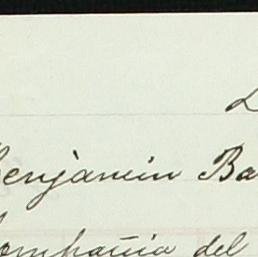 Benjamin Ba
Compañia del